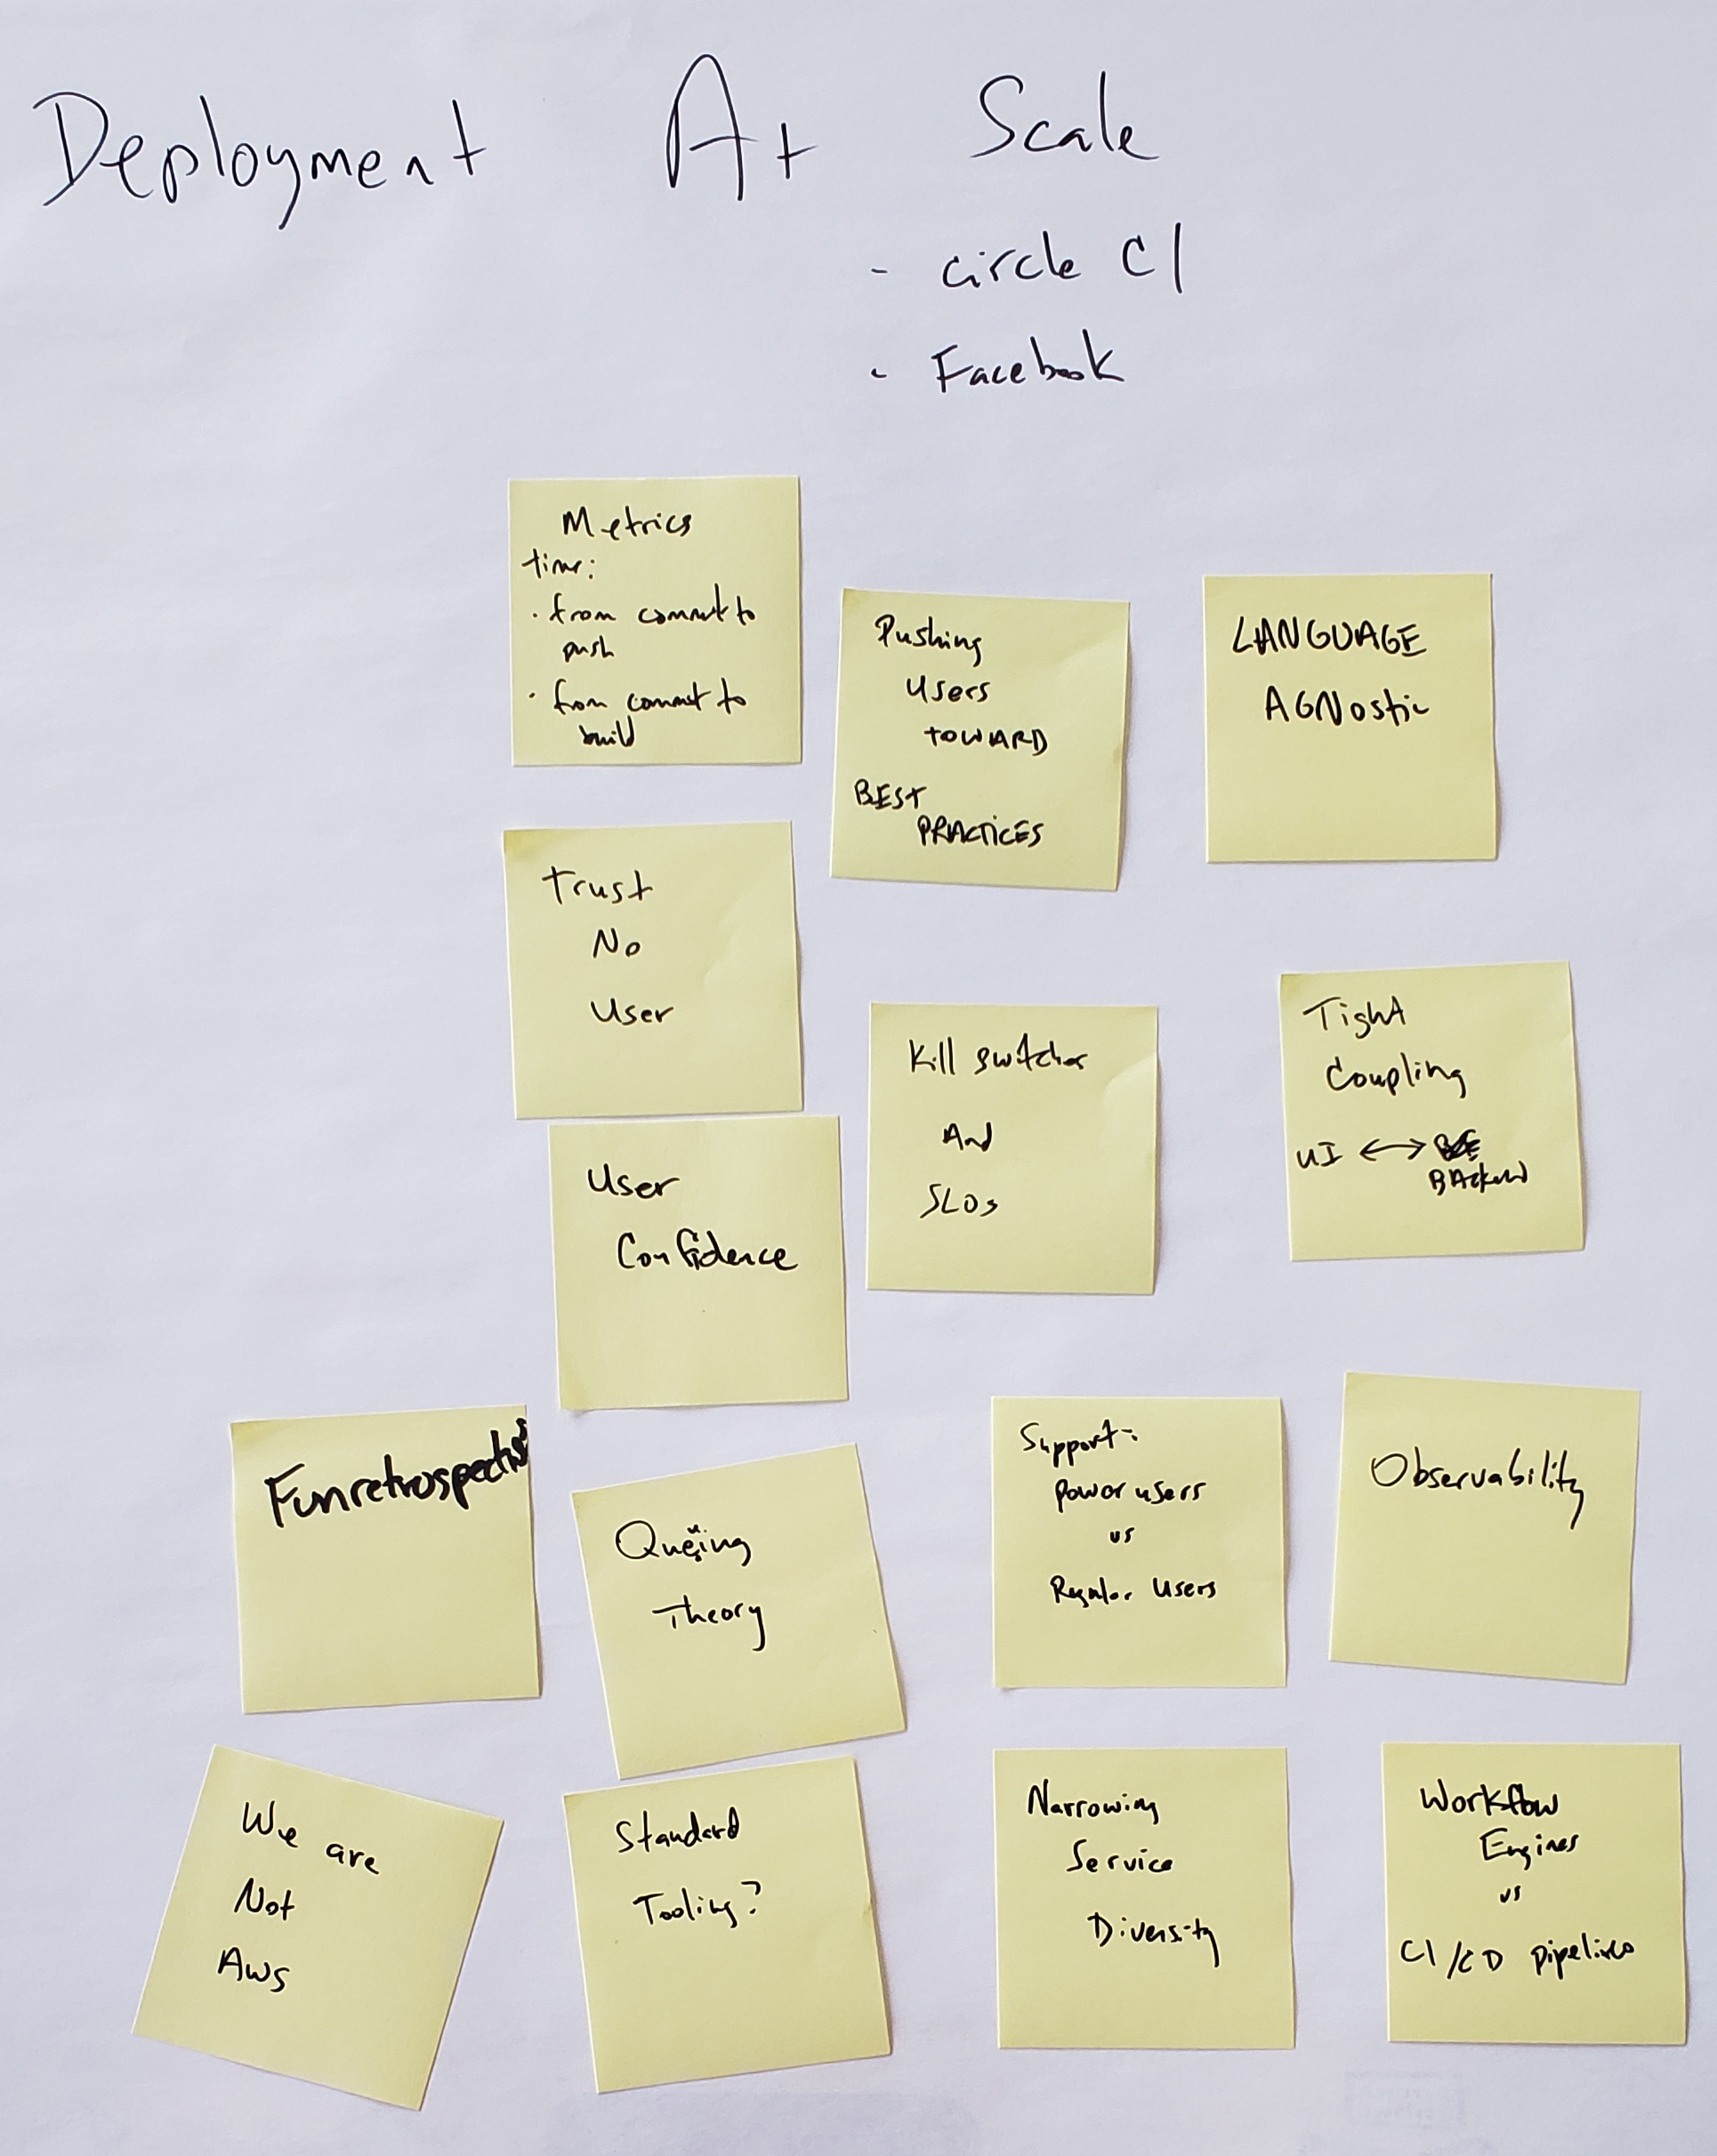 Deployment At Scale
- circle CI
- Facebook
Metrics
time:
· from commit to
push
· from commit to
build
Pushing
Users
TOWARD
BEST
PRACTICES
LANGUAGE
AGNostic
Trust
No
User
Kill switches
And
SLOs
Tight
Coupling
UI ↔
BAckend
User
Confidence
Funretrospectives
Queuing
Theory
Support:
power users
vs
Regular Users
Observability
We are
Not
Aws
Standard
Tooling?
Narrowing
Service
Diversity
Workflow
Engines
vs
CI/CD pipelines